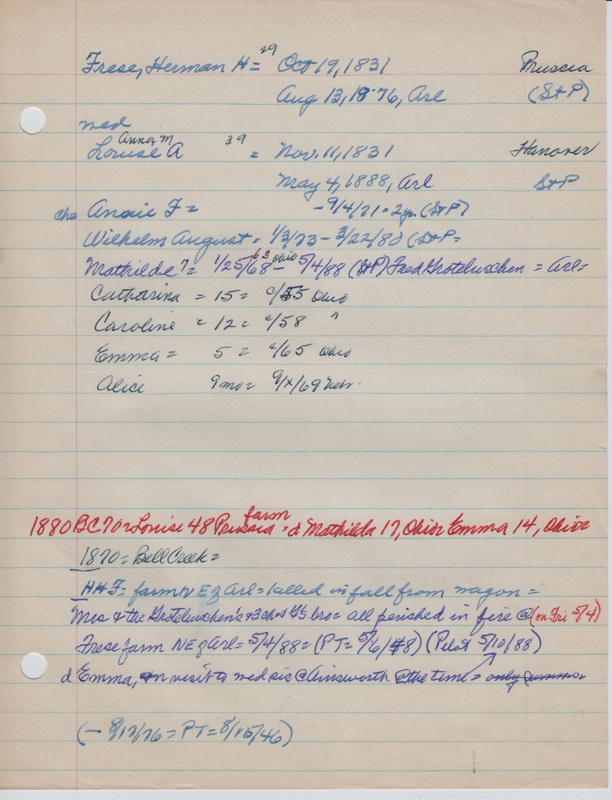 29
Frese, Herman H = Oct 19, 1831 Prussia
Aug 13, 1876, Arl (StP)
med
Anna M 39
Louise A = Nov. 11, 1831 Hanover
May 4, 1888, Arl StP
chs Annie F = - 9/4/71 = 2yr (StP)
Wilhelm August - 1/3/73 - 3/22/80 (StP =
63 Ohio
Mathilde 7 = 1/25/68 - 5/4/88 (StP) Fred Groteluschen = Arl =
Catharina = 15 = c/55 Ohio
Caroline = 12 = c/58 "
Emma = 5 = c/65 Ohio
Alice 9 mo = 9/x/69 Nebr.
farm
1880 BC 70 Louise 48 Prussia = d Mathilda 17, Ohio Emma 14, Ohio
1870 = Bell Creek =
HHF = farm N E of Arl = killed in fall from wagon =
Mrs & the Groteluschen's & 3 chs & G's bro = all perished in fire @ (on Fri 5/4)
Frese farm NE of Arl = 5/4/88 = (PT = 5/6/88) (Pilot 5/10/88)
d Emma, on visit to med sis @ Ainsworth @ the time = only
(- 8/12/76 = PT = 8/15/46)